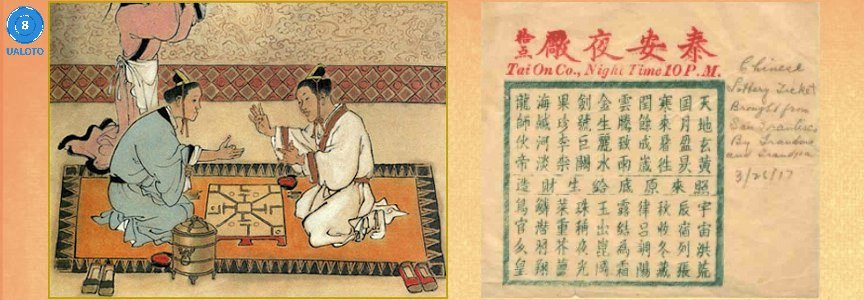 8
UALOTO
泰安夜廠
拾点
Tai On Co., Night Time 10 P. M.
天地玄黃
日月盈昃
寒來暑往
閏餘成歲
雲騰致雨
金生麗水
劍號巨闕
果珍李柰
海鹹河淡
龍師火帝
照來原底給生財造
宇宙洪荒
辰宿列張
秋收冬藏
律呂調陽
露結為霜
玉出崑岡
珠稱夜光
菜重芥薑
鱗潛羽翔
鳥官人皇
Chinese
Lottery Ticket
Brought from
San Francisco
By Grandma
and Grandpa